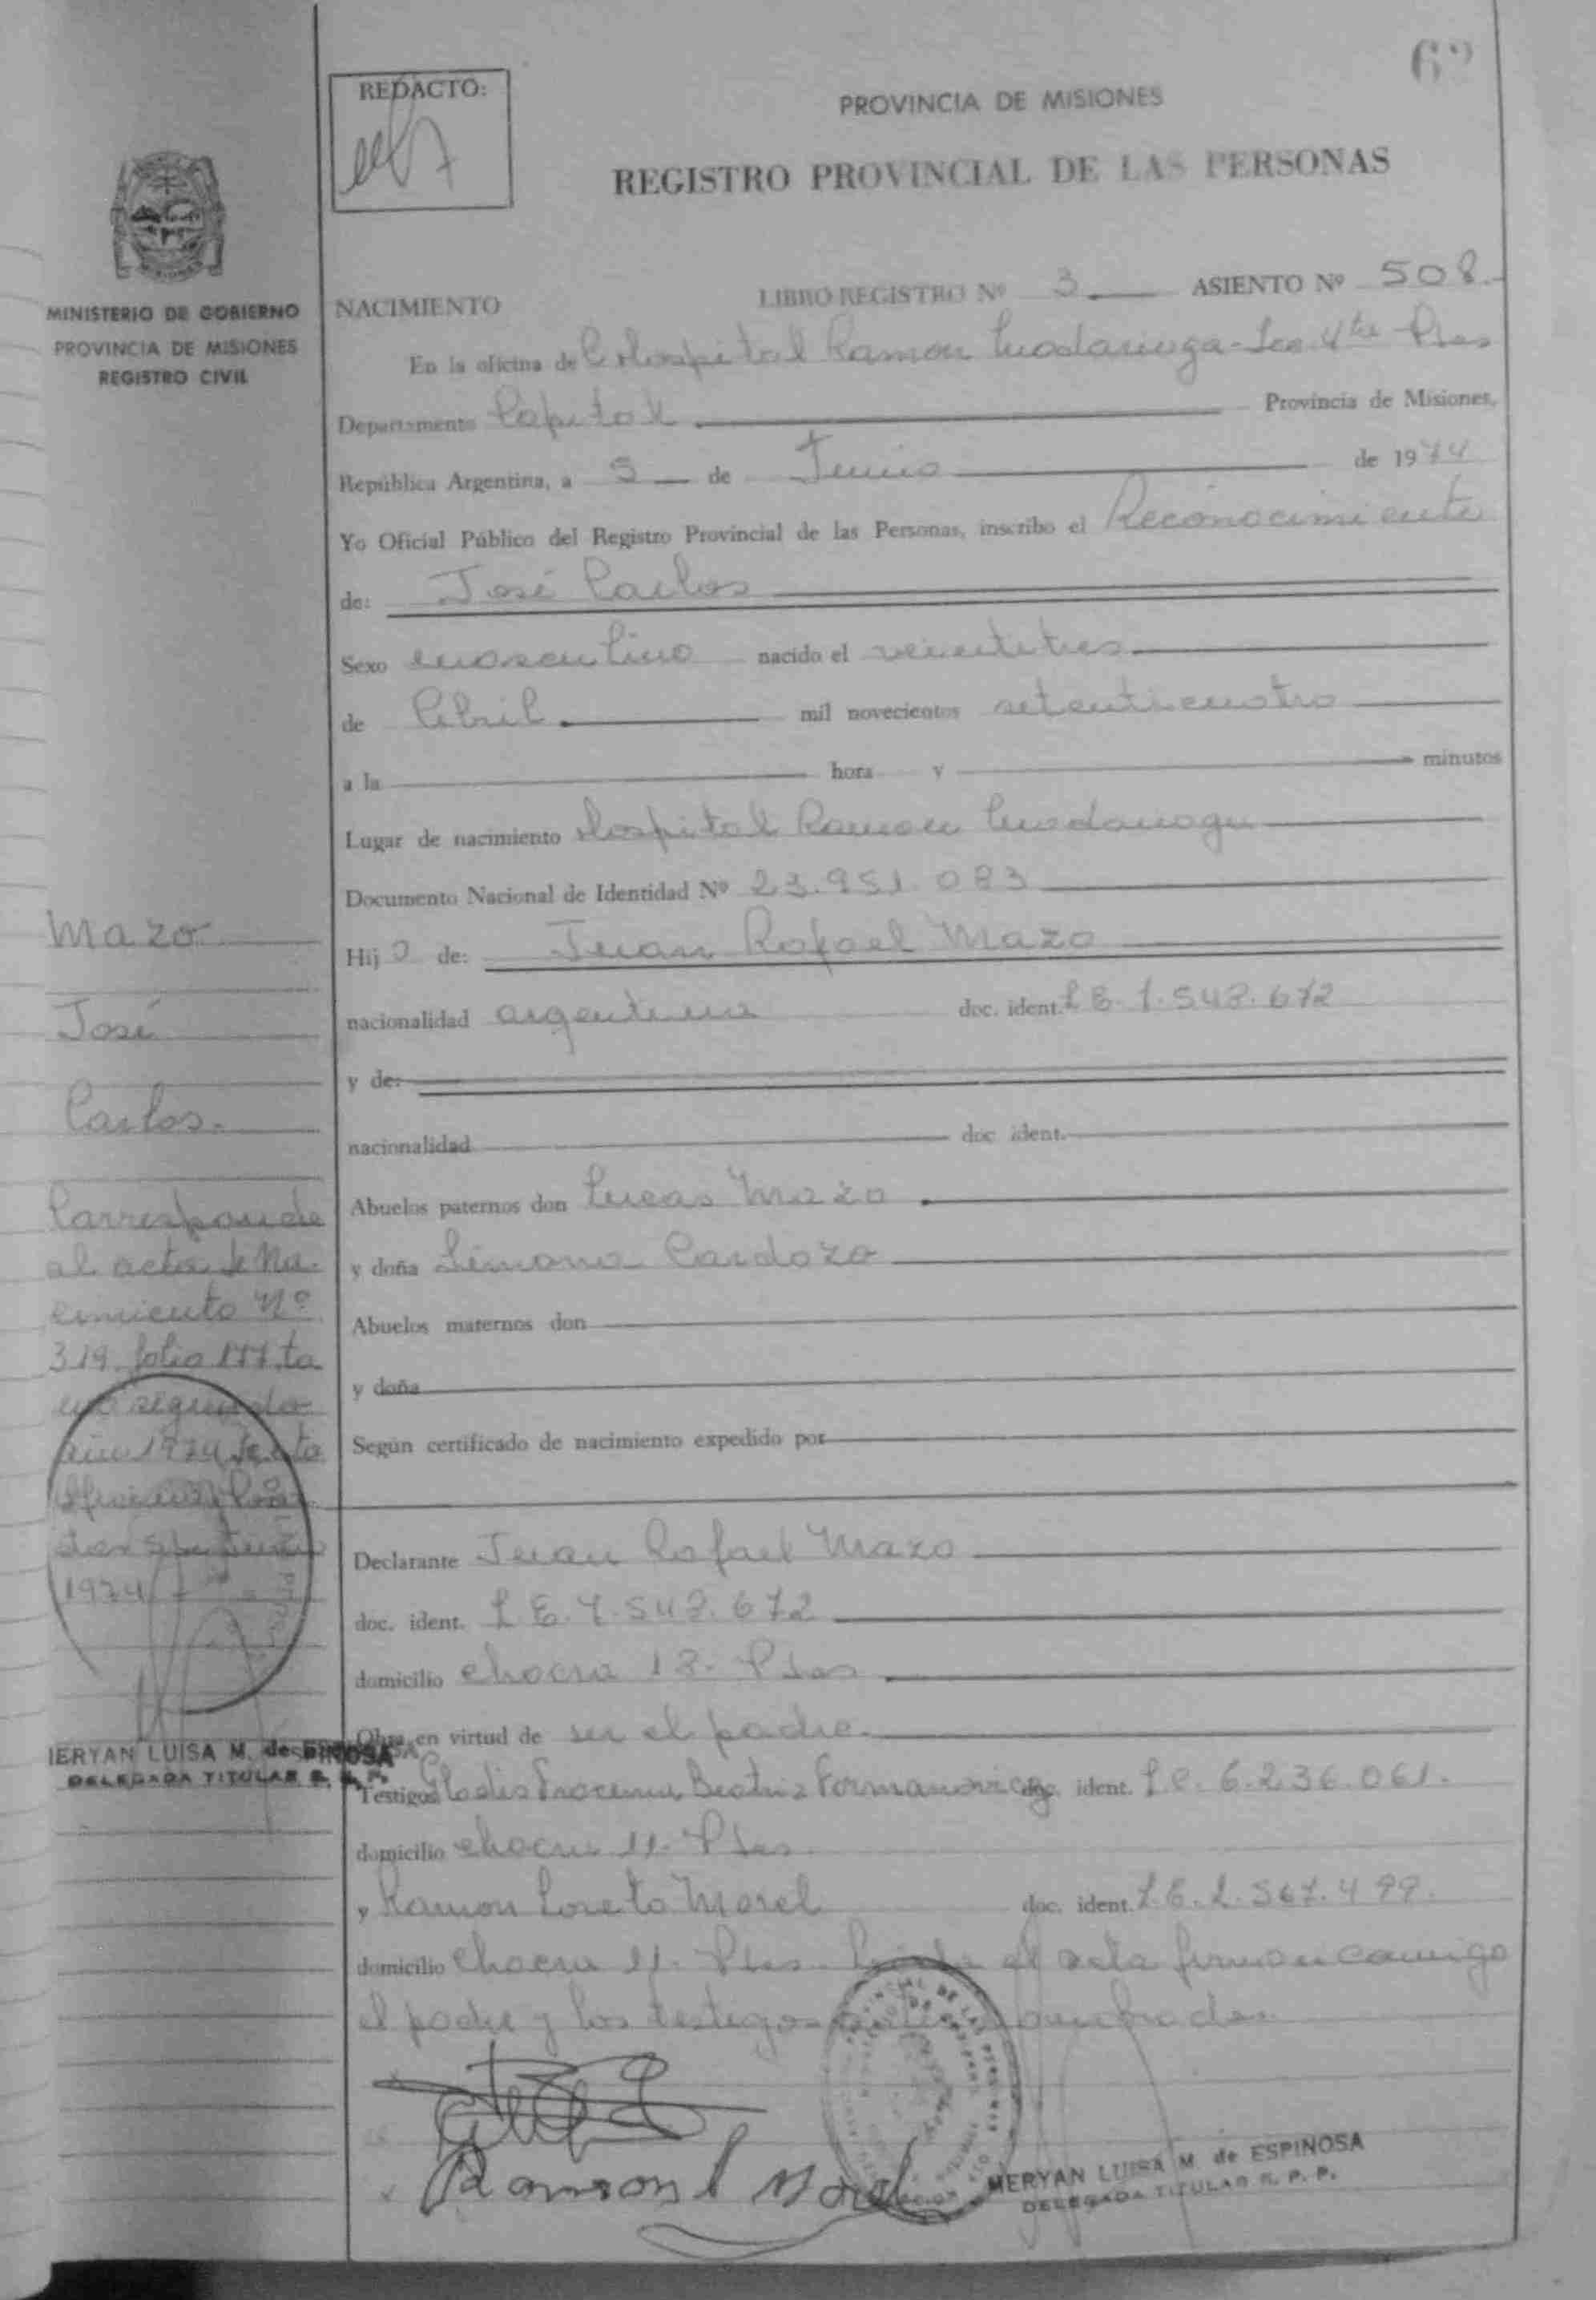 REDACTO:
PROVINCIA DE MISIONES
REGISTRO PROVINCIAL DE LAS PERSONAS
MINISTERIO DE GOBIERNO
PROVINCIA DE MISIONES
REGISTRO CIVIL
NACIMIENTO LIBRO REGISTRO Nº 3 ASIENTO Nº 508.-
En la oficina de Hospital Ramon
Departamento Capital Provincia de Misiones,
República Argentina, a 5 de Junio de 1974
Yo Oficial Público del Registro Provincial de las Personas, inscribo el Reconocimiento
de: José Carlos
Sexo masculino nacido el veintitres
de Abril mil novecientos setenticuatro
a la hora y minutos
Lugar de nacimiento Hospital Ramon
Documento Nacional de Identidad Nº 23.951.083
Hijo de: Juan Rafael Mazo
nacionalidad argentina doc. ident. L E.
y de:
nacionalidad doc ident.
Abuelos paternos don Lucas Mazo
y doña Simona Cardozo
Abuelos maternos don
y doña
Según certificado de nacimiento expedido por
Declarante Juan Rafael Mazo
doc. ident. L E.
domicilio chacra 18. Pdas
Obra en virtud de ser el padre.
Testigos Gladis Beatriz doc. ident. L.C. 6.236.061.
domicilio chacra 11. Pdas
y Ramon Loreto Morel doc. ident. L.E.
domicilio chacra 11. Pdas. Leida el acta firman conmigo
el padre y los testigos
Ramon L Morel
MERYAN LUISA M. de ESPINOSA
DELEGADA TITULAR R. P. P.
Mazo
José
Carlos.
Corresponde
al acta de Na-
cimiento Nº
319 folio 177 to
mo segundo
año 1974 de esta
1974
MERYAN LUISA M. de ESPINOSA
DELEGADA TITULAR R. P. P.